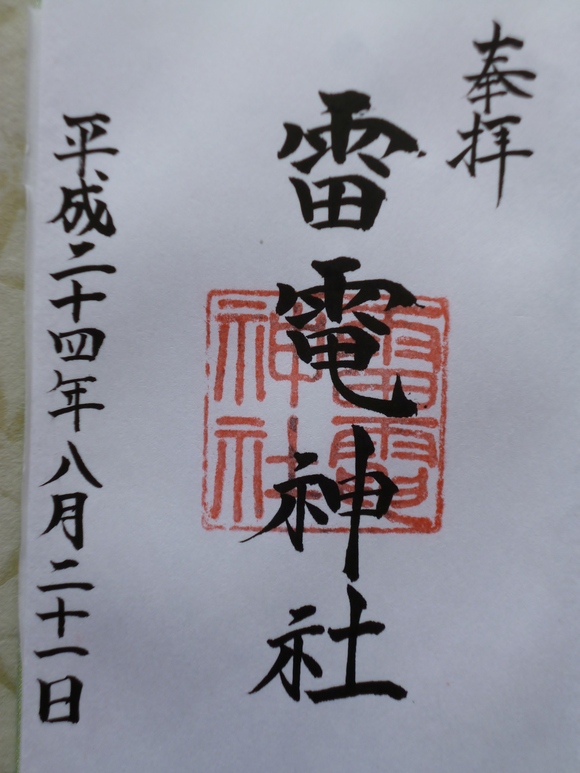 奉拝
雷電神社
雷電
神社
平成二十四年八月二十一日